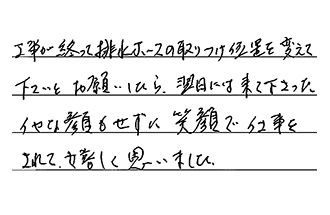 工事が終って排水ホースの取りつけ位置を変えて
下さいとお願いしたら、翌日には来て下さった
イヤな顔もせずに笑顔で仕事を
されて、嬉しく思いました。